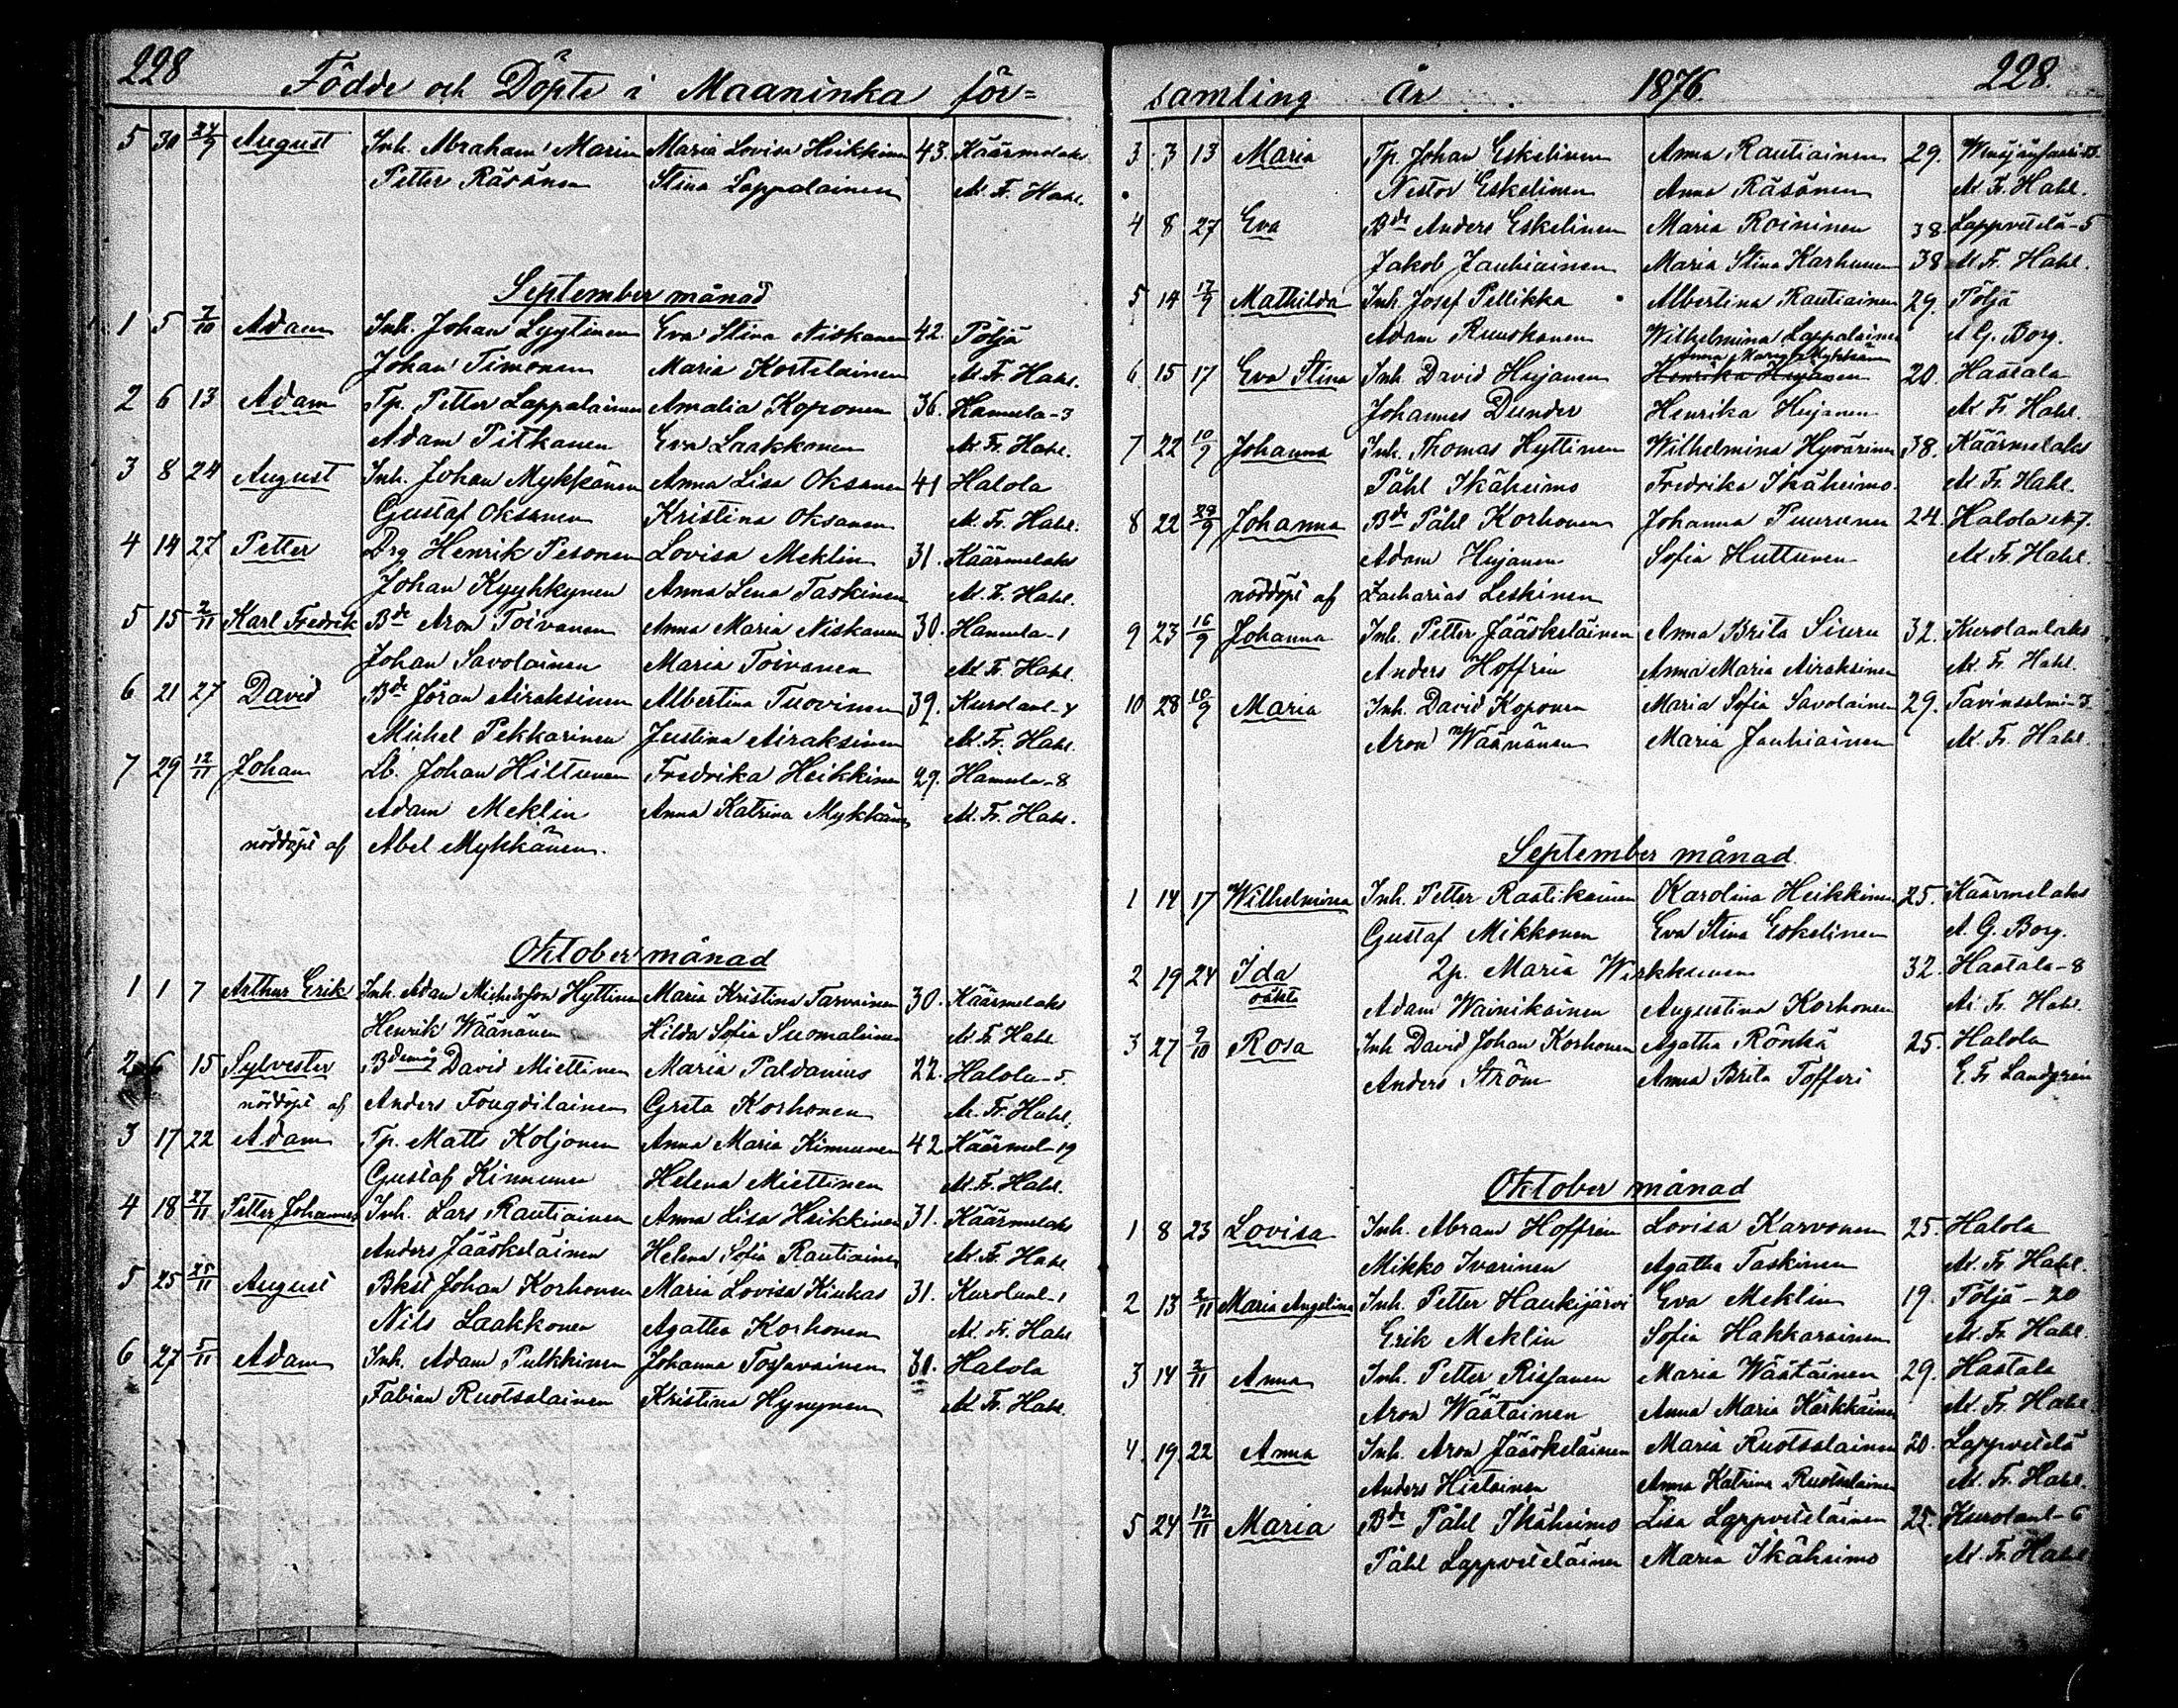 228
Födde och Döpte i Maaninka för=
5 30 24/9 August Inh. Abraham Marin Maria Lovisa Heikkinen 43. Käärmelaks
Petter Räsänen Stina Lappalainen M. Fr. Hahl.
September månad
1 5 7/10 Adam Inh. Johan Lyytinen Eva Stina Niskanen 42. Pöljä
Johan Timonen Maria Kortelainen M. Fr. Hahl.
2 6 13 Adam Tp. Petter Lappalainen Amalia Koponen 36. Hamula-3
Adam Pitkanen Eva Laakkonen M. Fr. Hahl.
3 8 24 August Inh. Johan Mykkänen Anna Lisa Oksanen 41 Halola
Gustaf Oksanen Kristina Oksanen M. Fr. Hahl.
4 14 27 Petter Drg Henrik Pesonen Lovisa Meklin 31. Käärmelaks
Johan Kyyhkynen Anna Lena Taskinen M. F. Hahl.
5 15 2/11 Karl Fredrik Bde Aron Toivanen Anna Maria Niskanen 30. Hamula-1
Johan Savolainen Maria Toivanen M. Fr. Hahl.
6 21 27 David Bde Jöran Airaksinen Albertina Tuovinen 39. Kurolanl-4
Michel Pekkarinen Justina Airaksinen M. Fr. Hahl.
7 29 12/11 Johan Lb. Johan Hiltunen Fredrika Heikkinen 29. Hamula-8
Adam Meklin Anna Katrina Mykkänen M. Fr. Hahl.
nöddöpt af Abel Mykkänen.
Oktober månad
1 1 7 Arthur Erik Inh. Adam Michelsson Hyttinen Maria Kristina Tarvainen 30. Käärmelaks
Henrik Wäänänen Hilda Sofia Suomalainen M. Fr. Hahl
2 6 15 Sylvester Bdemåg David Miettinen Maria Paldanius 22. Halola-5.
nöddöpt af Anders Fougdilainen Greta Korhonen M. Fr. Hahl.
3 17 22 Adam Tp. Matts Koljonen Anna Maria Kinnunen 42 Käärmel-19
Gustaf Kinnunen Helena Miettinen M. Fr. Hahl.
4 18 27/11 Petter Johannes Inh. Lars Rautiainen Anna Lisa Heikkinen 31. Käärmelaks
Anders Jääskeläinen Helena Sofia Rautiainen M. Fr. Hahl
5 25 25/11 August Bkst Johan Korhonen Maria Lovisa Kiukas 31. Kurolanl-1
Nils Laakkonen Agatha Korhonen M. Fr. Hahl
6 27 5/11 Adam Inh. Adam Pulkkinen Johanna Tossavainen 31. Halola
Fabian Ruotsalainen Kristina Hynynen M. Fr. Hahl.
samling År 1876. 228.
3 3 13 Maria Tp. Johan Eskelinen Anna Rautiainen 29.
Nestor Eskelinen Anna Räsänen M. Fr. Hahl.
4 8 27 Eva Bde Anders Eskelinen Maria Roininen 38 Lappvetelä-5
Jakob Jauhiainen Maria Stina Karhunen 38 M. Fr. Hahl.
5 14 17/9 Mathilda Inh. Josef Pellikka Albertina Rautiainen 29. Pöljä
Adam Ruuskanen Wilhelmina Lappalainen A. G. Borg.
Anna Maria Mykkänen
6. 15 17 Eva Stina Inh. David Hujanen Henrika Hujanen 20. Haatala
Johannes Dunder Henrika Hujanen M. Fr. Hahl.
7 22 10/9 Johanna Inh. Thomas Hyttinen Wilhelmina Hyvärinen 38. Käärmelaks
Påhl Ikäheimo Fredrika Ikäheimo M. Fr. Hahl.
8 22 29/9 Johanna Bde Påhl Korhonen Johanna Puurunen 24. Halola N7.
Adam Hujanen Sofia Huttunen M. Fr. Hahl.
nöddöpt af Zacharias Leskinen
9 23 16/9 Johanna Inh. Petter Jääskeläinen Anna Brita Siuru 32. Kurolanlaks
Anders Hoffrin Anna Maria Airaksinen M. Fr. Hahl.
10 28 10/9 Maria Inh. David Koponen Maria Sofia Savolainen 29. Tavinsalmi-3
Aron Wäänänen Maria Jauhiainen M. Fr. Hahl.
September månad.
1 14 17 Wilhelmina Inh. Petter Raatikainen Karolina Heikkinen 25. Käärmelaks
Gustaf Mikkonen Eva Stina Eskelinen A. G. Borg.
2 19 24 Ida Lp. Maria Wirkkunen 32. Haatala-8
oäkta Adam Wainikainen Augustina Korhonen M. Fr. Hahl.
3 27 9/10 Rosa Inh David Johan Korhonen Agatha Rönkä 25. Halola
Anders Ström Anna Brita Tofferi E. Fr. Landgrén
Oktober månad
1 8 23 Lovisa Inh. Abram Hoffrin Lovisa Karvonen 25. Halola
Mikko Ivarinen Agatha Taskinen M. Fr. Hahl.
2 13 2/11 Maria Angelina Inh. Petter Haukijärvi Eva Meklin 19. Pöljä-20
Erik Meklin Sofia Hakkarainen M. Fr. Hahl.
3 14 2/11 Anna Inh. Petter Rissanen Maria Wäätäinen 29. Haatala
Aron Wäätäinen Anna Maria Kärkkäinen M. Fr. Hahl
4. 19. 22 Anna Inh. Aron Jääskeläinen Maria Ruotsalainen 20. Lappvetelä
Anders Hiotainen Anna Katrina Ruotsalainen M. Fr. Hahl.
5 24 12/11 Maria Bde Påhl Ikäheimo Lisa Lappveteläinen 25. Kurolanl-6
Påhl Lappveteläinen Maria Ikäheimo M. Fr. Hahl